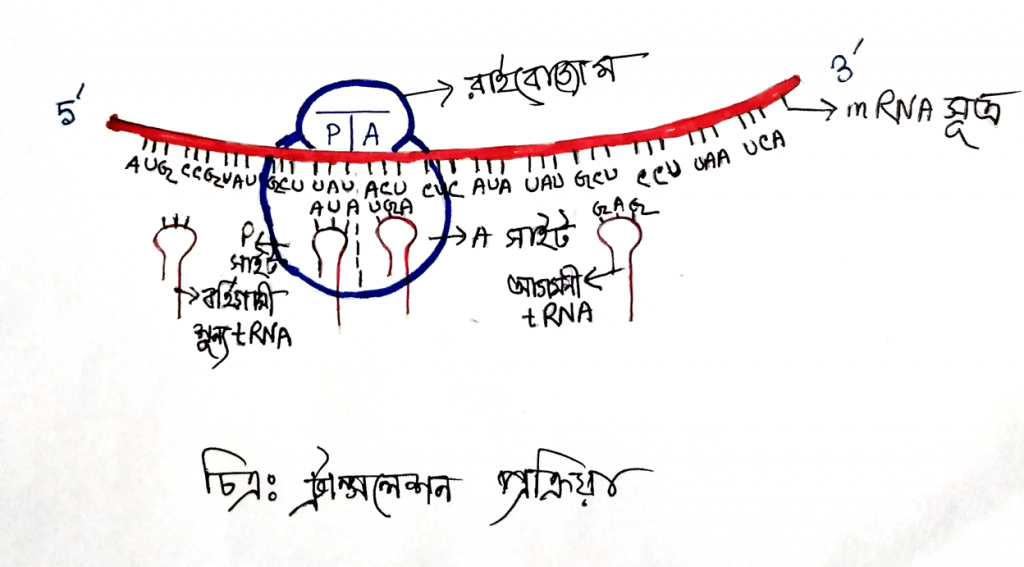 5′
3′
রাইবোজোম
P A
mRNA সূত্র
AUG CCG UAU GCU UAU ACU CUC AUA UAU GCU CCU UAA UCA
AUA UGA
GAG
P
সাইট
A সাইট
আগমনী
tRNA
বহির্গামী
শূন্য tRNA
চিত্রঃ ট্রান্সলেশন প্রক্রিয়া